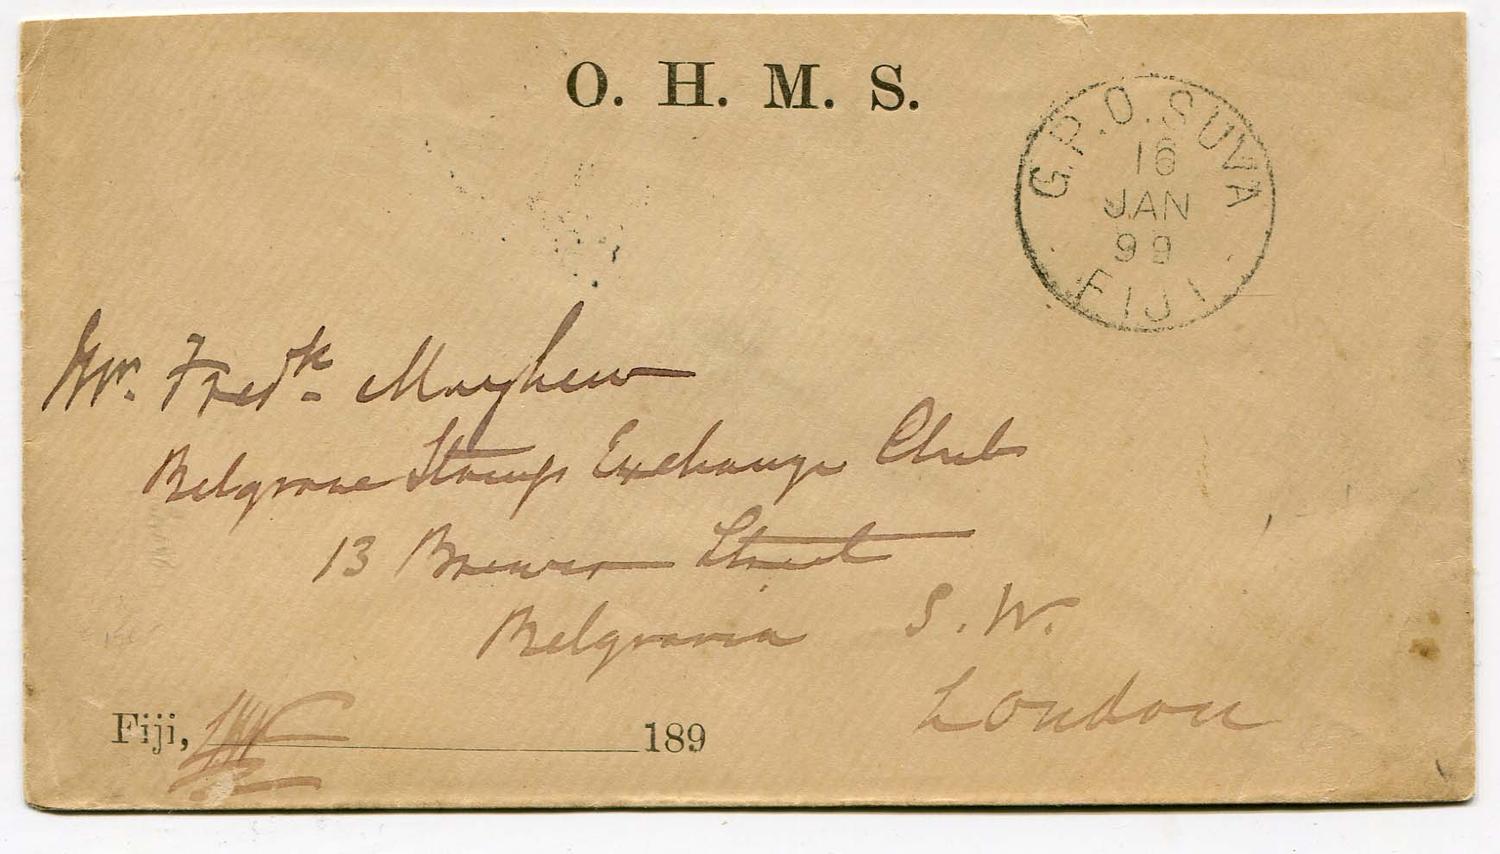 O. H. M. S.
G.P.O. SUVA
16
JAN
99
FIJI
Mr. Fredk. Mayhew
Belgrave Stamp Exchange Club
13 Brewer Street
Belgravia S. W.
London
Fiji, 189